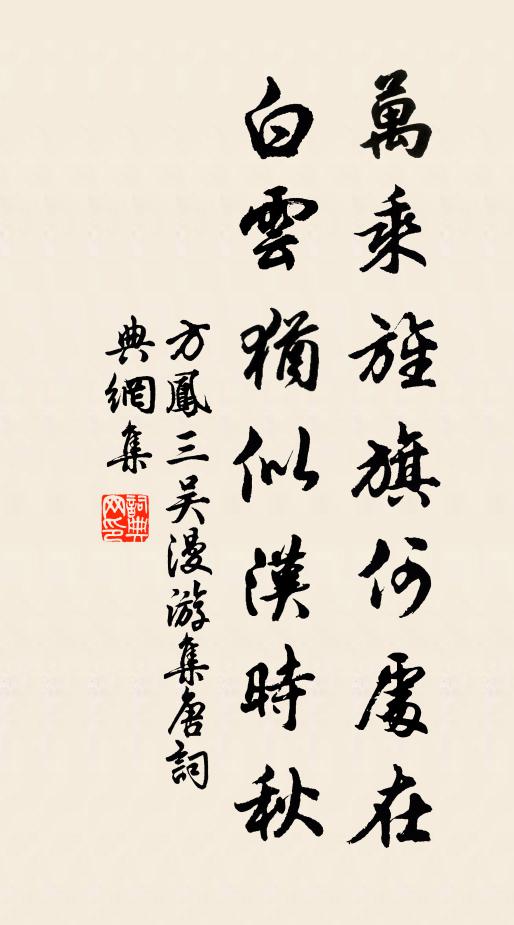 萬乘旌旗何處在
白雲猶似漢時秋
方鳳三吴漫游集唐詞
典網集
詞典
网印